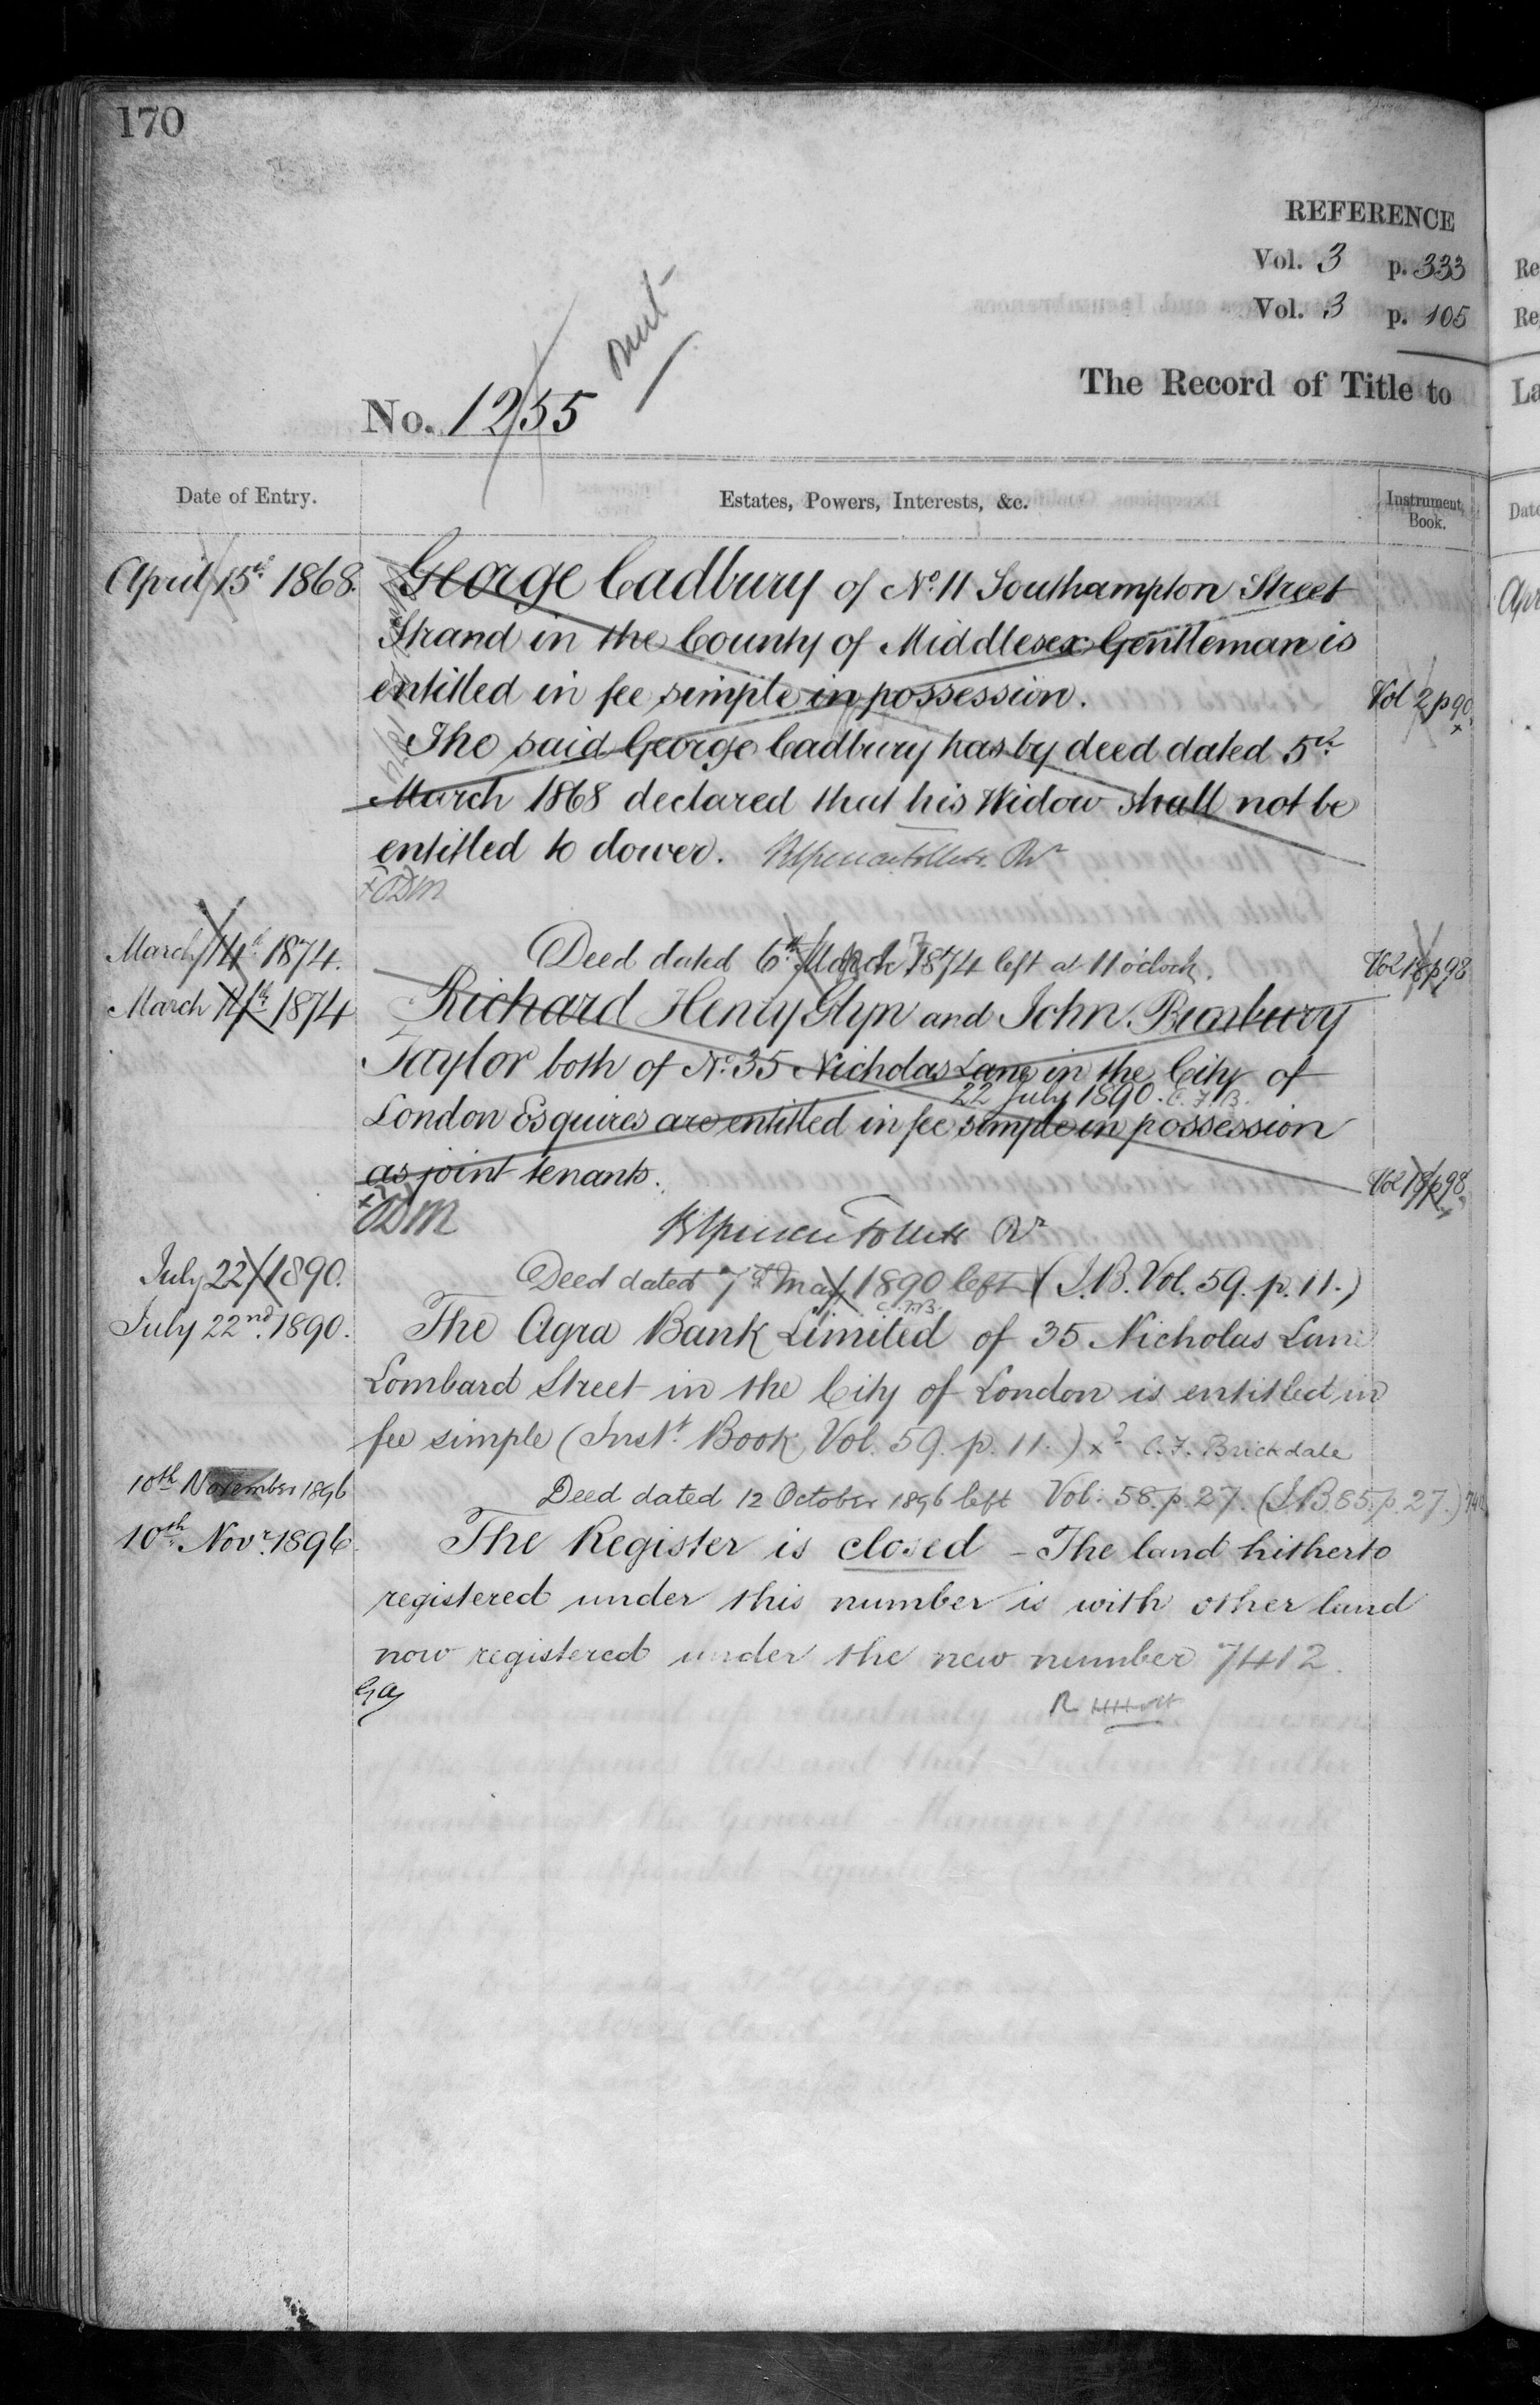 170
REFERENCE
Vol. 3 p. 333
Vol. 3 p. 105
No. 1255
The Record of Title to
Date of Entry.
Estates, Powers, Interests, &c.
Instrument Book.
April 15th 1868. George Cadbury of No. 11 Southampton Street
Strand in the County of Middlesex Gentleman is
entitled in fee simple in possession. Vol 2 p 90
The said George Cadbury has by deed dated 5th
March 1868 declared that his Widow shall not be
entitled to dower.
March 14th 1874. Deed dated 6th March 1874 left at 11 o'clock. Vol 18 p 98
March 14th 1874 Richard Henry Glyn and John Bunbury
Taylor both of No. 35 Nicholas Lane in the City of
22 July 1890. C.F.B.
London Esquires are entitled in fee simple in possession
as joint tenants. Vol 18 p 98
July 22 1890. Deed dated 7th May 1890 left (I.B. Vol. 59. p. 11.)
C.F.B.
July 22nd. 1890. The Agra Bank Limited of 35 Nicholas Lane
Lombard Street in the City of London is entitled in
fee simple (Inst. Book, Vol. 59. p. 11.) C.F. Brickdale
10th November 1896 Deed dated 12 October 1896 left Vol. 58. p. 27. (I.B. 85. p. 27.)
10th Novr. 1896. The Register is closed – The land hitherto
registered under this number is with other land
now registered under the new number 7412.